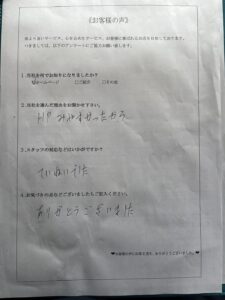 《お客様の声》
1.当社を何でお知りになりましたか?
ホームページ □ご紹介 □その他
2.当社を選んだ理由をお聞かせ下さい。
HP みやすかったから
3.スタッフの対応などはいかがですか?
ていねいでした
4.お気づきの点などございましたらご記入ください。
ありがとうございました